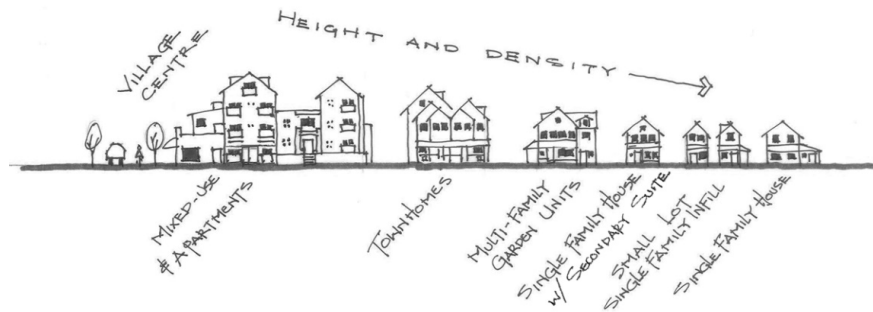 HEIGHT AND DENSITY
VILLAGE
CENTRE
MIXED-USE
& APARTMENTS
TOWNHOMES
MULTI-FAMILY
GARDEN UNITS
SINGLE FAMILY HOUSE
W/ SECONDARY SUITE
SMALL LOT
SINGLE FAMILY INFILL
SINGLE FAMILY HOUSE